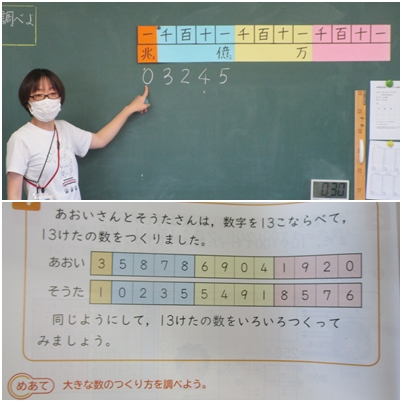 調べよ
一千百十一千百十一千百十一
兆 億 万
03245
030
あおいさんとそうたさんは，数字を13こならべて，
13けたの数をつくりました。
あおい 3587869041920
そうた 1023554918576
同じようにして，13けたの数をいろいろつくって
みましょう。
めあて 大きな数のつくり方を調べよう。